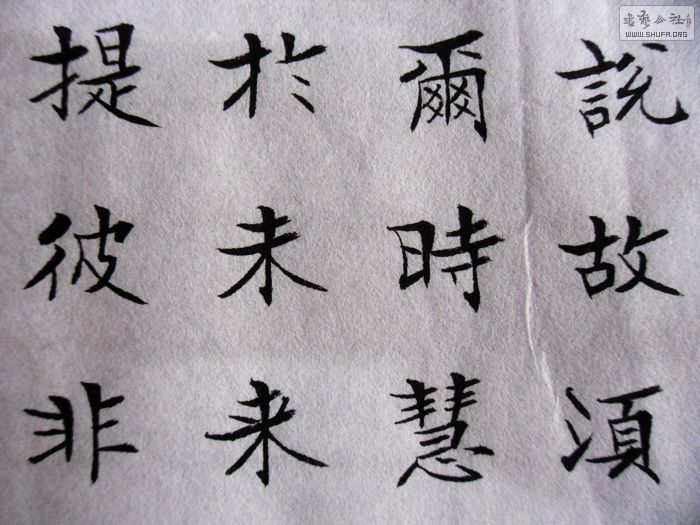 說故湏
爾時慧
於未来
提彼非
書藝公社
WWW.SHUFA.ORG